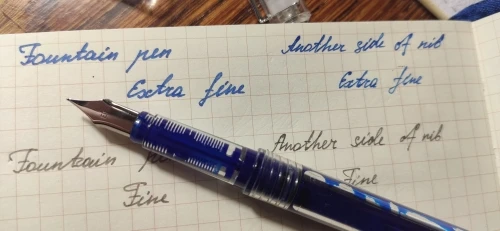 Fountain pen
Extra fine
Another side of nib
Extra fine
Fountain
Fine
Another side of nib
Fine